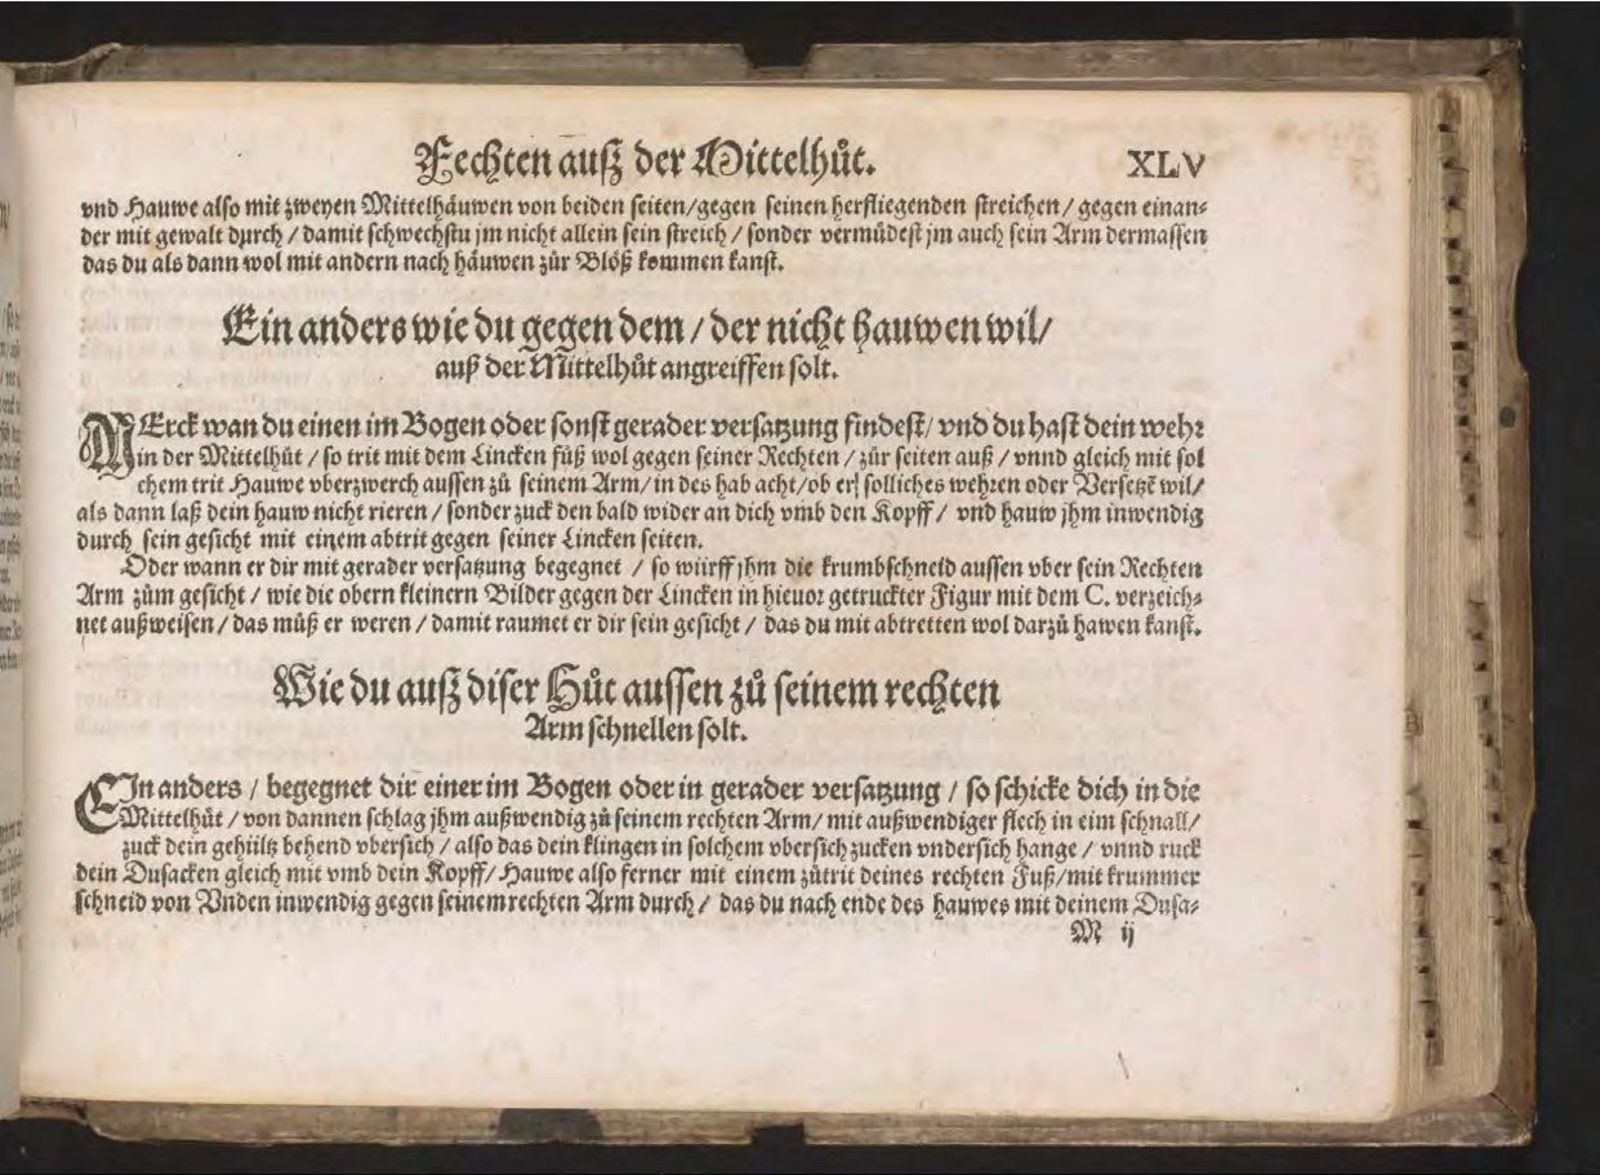 Fechten auß der Mittelhůt.
XLV
vnd Hauwe also mit zweyen Mittelhäuwen von beiden seiten/gegen seinen herfliegenden streichen/ gegen einan⸗
der mit gewalt durch / damit schwechstu jm nicht allein sein streich / sonder vermůdest jm auch sein Arm dermassen
das du als dann wol mit andern nach häuwen zůr Blöß kommen kanst.
Ein anders wie du gegen dem / der nicht hauwen wil/
auß der Mittelhůt angreiffen solt.
MErck wan du einen im Bogen oder sonst gerader versatzung findest/ vnd du hast dein wehr
in der Mittelhůt / so trit mit dem Lincken fůß wol gegen seiner Rechten / zůr seiten auß / vnnd gleich mit sol
chem trit Hauwe vberzwerch aussen zů seinem Arm/ in des hab acht/ob er solliches wehren oder Versetzē wil/
als dann laß dein hauw nicht rieren / sonder zuck den bald wider an dich vmb den Kopff / vnd hauw jhm inwendig
durch sein gesicht mit einem abtrit gegen seiner Lincken seiten.
Oder wann er dir mit gerader versatzung begegnet / so würff jhm die krumbschneid aussen vber sein Rechten
Arm zům gesicht / wie die obern kleinern Bilder gegen der Lincken in hieuor getruckter Figur mit dem C. verzeich⸗
net außweisen / das můß er weren / damit raumet er dir sein gesicht / das du mit abtretten wol darzů hawen kanst.
Wie du auß diser Hůt aussen zů seinem rechten
Arm schnellen solt.
EIn anders / begegnet dir einer im Bogen oder in gerader versatzung / so schicke dich in die
Mittelhůt / von dannen schlag jhm außwendig zů seinem rechten Arm/ mit außwendiger flech in eim schnall/
zuck dein gehiltz behend vbersich / also das dein klingen in solchem vbersich zucken vndersich hange / vnnd ruck
dein Dusacken gleich mit vmb dein Kopff/ Hauwe also ferner mit einem zůtrit deines rechten Fuß/mit krummer
schneid von Vnden inwendig gegen seinem rechten Arm durch / das du nach ende des hauwes mit deinem Dusa⸗
M ij